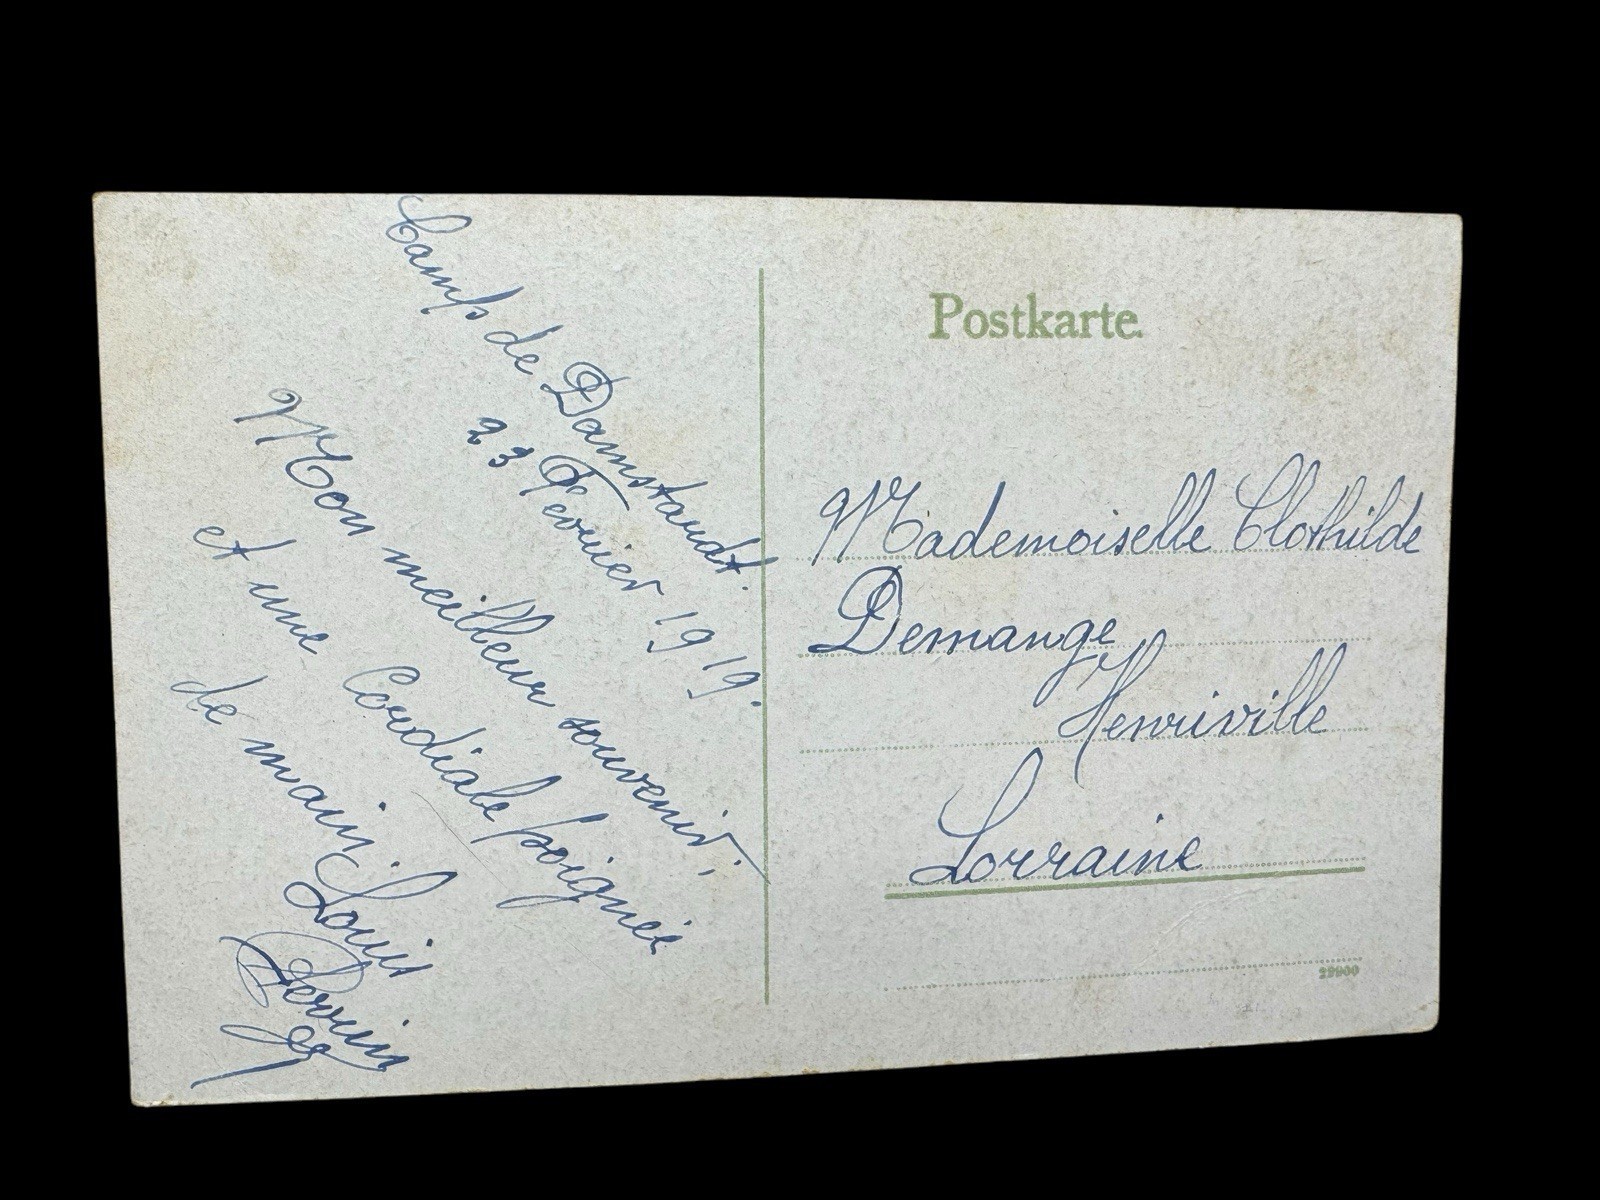 Camp de Damstardt.
23 Fevrier 1919.
Mon meilleur souvenir.
et une Cordiale poignée
de main.
Louis
Perrin
Postkarte.
Mademoiselle Clothilde
Demange
Henriville
Lorraine
22900